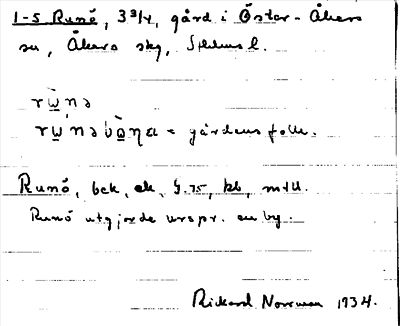 1-5 Runö, 3 3/4, gård i Öster-Åkers
sn, Åkers skg, Sthlms l.
rẁnə
gårdens folk.
Runö, bck, ek, G. 75, kb, mtl.
Runö utgjorde urspr. en by.
Rickard Norrman 1934.